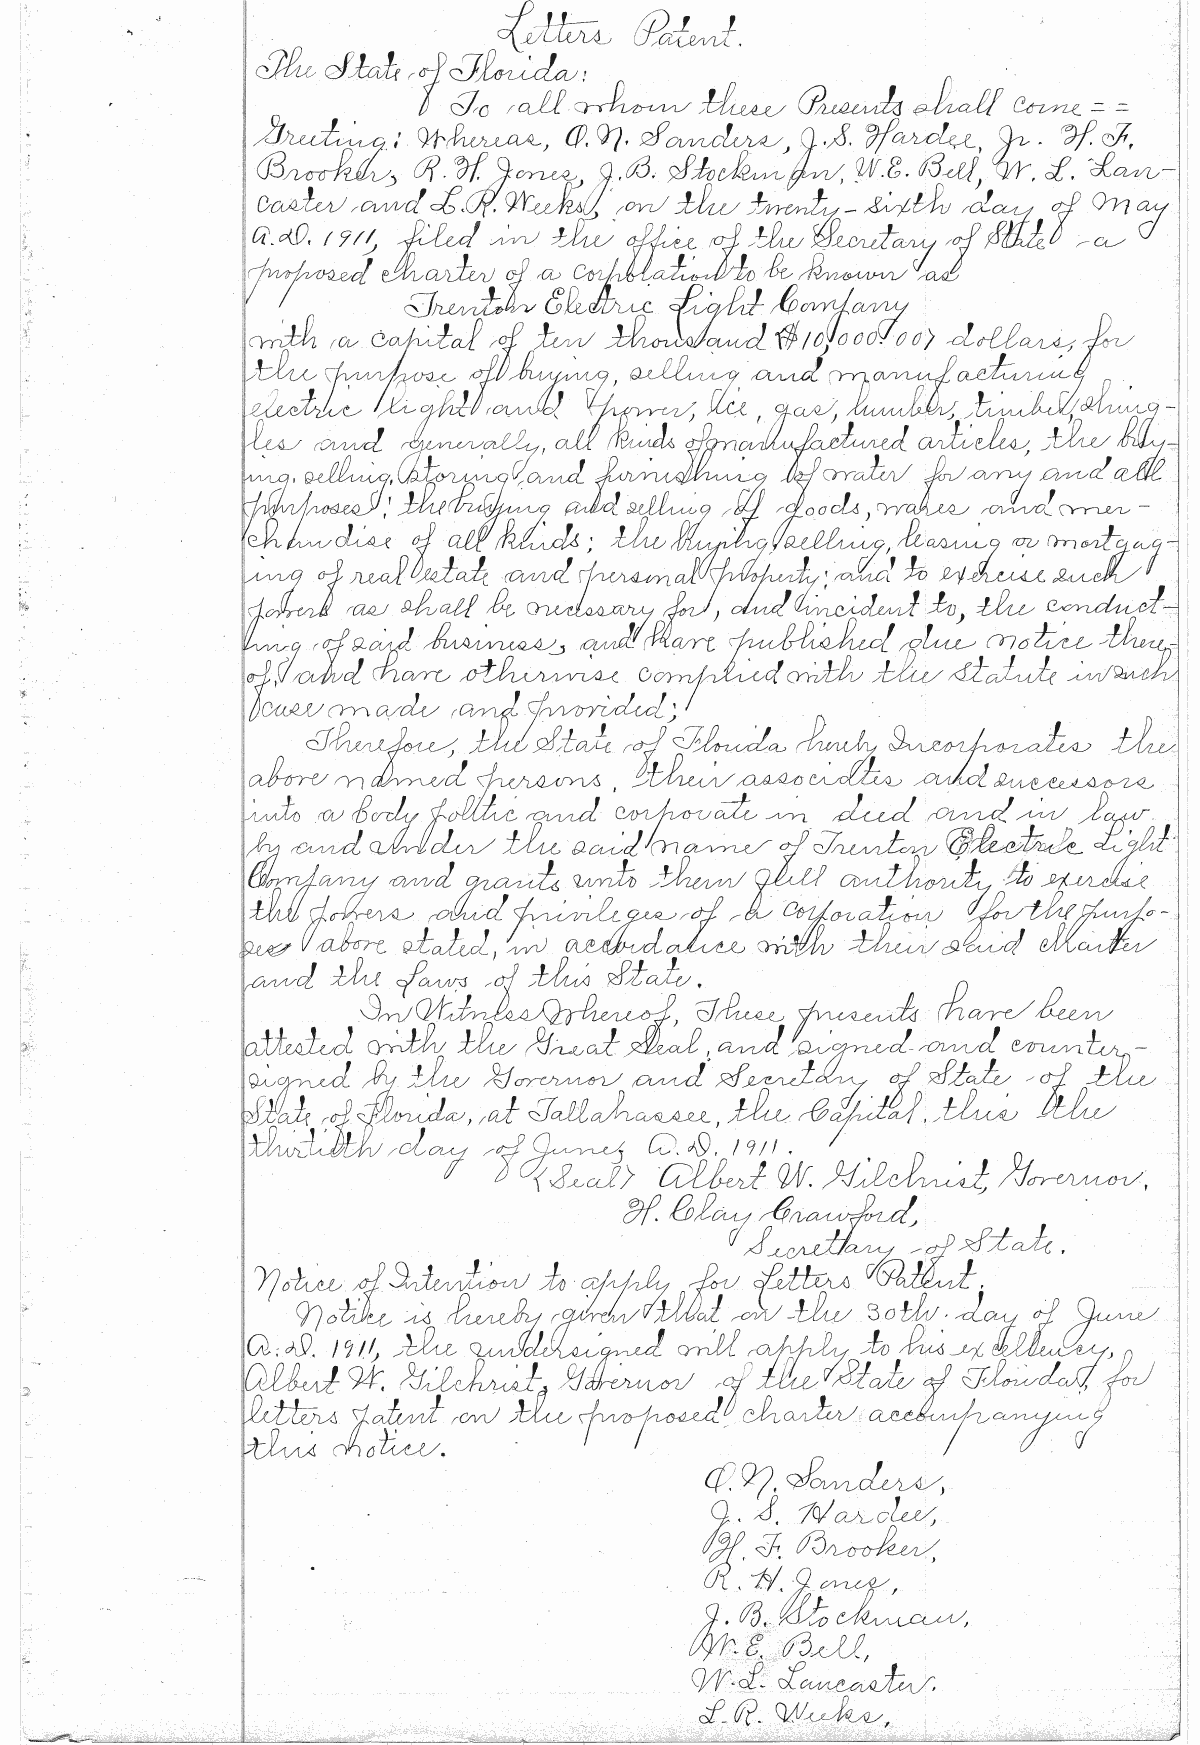 Letters Patent.
The State of Florida:
To all whom these Presents shall come = =
Greeting: Whereas, O. N. Sanders, J. S. Hardee, Jr. H. F.
Brooker, R. H. Jones, J. B. Stockman, W. E. Bell, W. L. Lan-
caster and L. R. Weeks, on the twenty-sixth day of May
A. D. 1911, filed in the office of the Secretary of State a
proposed charter of a corporation to be known as
Trenton Electric Light Company
with a capital of ten thousand ($10,000.00) dollars, for
the purpose of buying, selling and manufacturing
electric light and power, ice, gas, lumber, timber, shing-
les and generally, all kinds of manufactured articles, the buy-
ing, selling, storing and furnishing of water for any and all
purposes; the buying and selling of goods, wares and mer-
chandise of all kinds; the buying, selling, leasing or mortgag-
ing of real estate and personal property; and to exercise such
powers as shall be necessary for, and incident to, the conduct-
ing of said business, and have published due notice there-
of, and have otherwise complied with the statute in such
case made and provided;
Therefore, the State of Florida hereby Incorporates the
above named persons, their associates and successors
into a body politic and corporate in deed and in law
by and under the said name of Trenton Electric Light
Company and grants unto them full authority to exercise
the powers and privileges of a corporation for the purpo-
ses above stated, in accordance with their said charter
and the Laws of this State.
In Witness Whereof, These presents have been
attested with the Great Seal, and signed and counter-
signed by the Governor and Secretary of State of the
State of Florida, at Tallahassee, the Capital, this the
thirtieth day of June, A. D. 1911.
(Seal) Albert W. Gilchrist, Governor.
H. Clay Crawford,
Secretary of State.
Notice of Intention to apply for Letters Patent.
Notice is hereby given that on the 30th. day of June
A. D. 1911, the undersigned will apply to his excellency,
Albert W. Gilchrist, Governor of the State of Florida, for
letters patent on the proposed charter accompanying
this notice.
O. N. Sanders,
J. S. Hardee,
H. F. Brooker,
R. H. Jones,
J. B. Stockman,
W. E. Bell,
W. L. Lancaster.
L. R. Weeks,